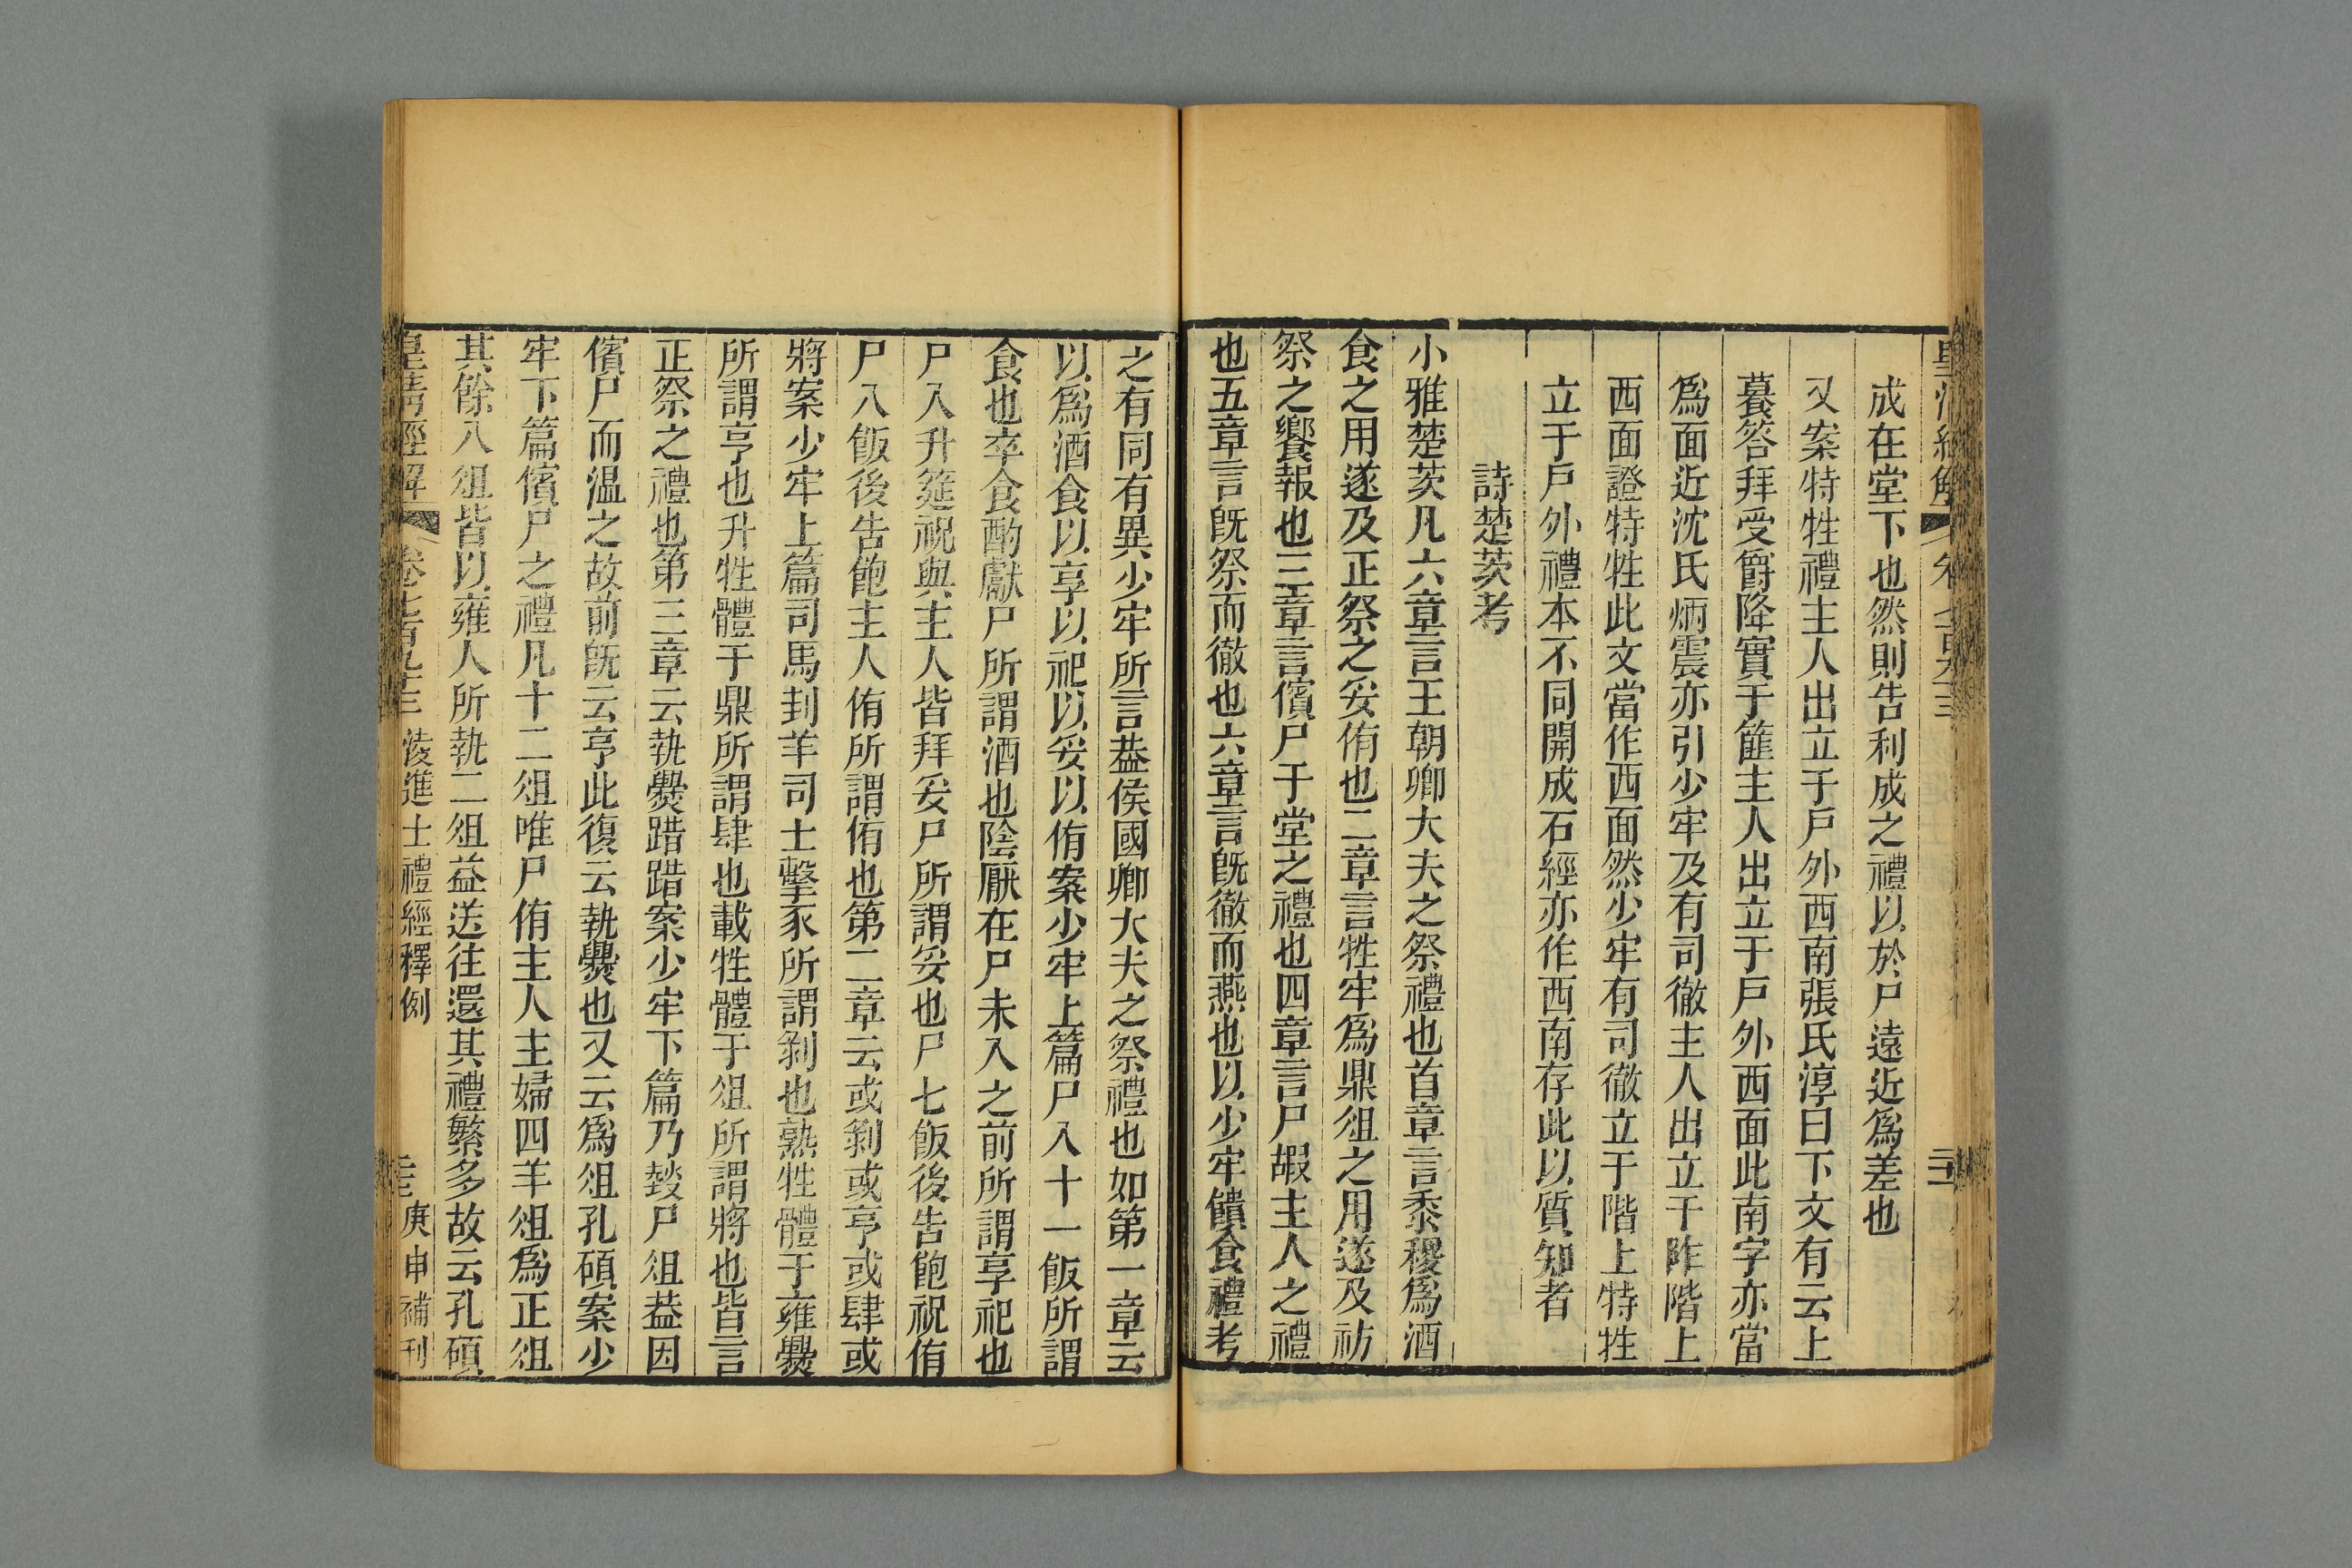 成在堂下也然則告利成之禮以於尸遠近爲差也
又案特牲禮主人出立于戶外西南張氏淳曰下文有云上
䭕答拜受爵降實于篚主人出立于戶外西面此南字亦當
爲面近沈氏炳震亦引少牢及有司徹主人出立于阼階上
西面證特牲此文當作西面然少牢有司徹立于階上特牲
立于戶外禮本不同開成石經亦作西南存此以質知者
詩楚茨考
小雅楚茨凡六章言王朝卿大夫之祭禮也首章言黍稷爲酒
食之用遂及正祭之妥侑也二章言牲牢爲鼎俎之用遂及祊
祭之饗報也三章言儐尸于堂之禮也四章言尸嘏主人之禮
也五章言旣祭而徹也六章言旣徹而燕也以少牢饋食禮考
之有同有異少牢所言葢侯國卿大夫之祭禮也如第一章云
以爲酒食以享以祀以妥以侑案少牢上篇尸入十一飯所謂
食也卒食酌獻尸所謂酒也陰厭在尸未入之前所謂享祀也
尸入升筵祝與主人皆拜妥尸所謂妥也尸七飯後告飽祝侑
尸八飯後告飽主人侑所謂侑也第二章云或剝或亨或肆或
將案少牢上篇司馬刲羊司士擊豕所謂剝也熟牲體于雍爨
所謂亨也升牲體于鼎所謂肆也載牲體于俎所謂將也皆言
正祭之禮也第三章云執爨踖踖案少牢下篇乃燅尸俎葢因
儐尸而温之故前旣云亨此復云執爨也又云爲俎孔碩案少
牢下篇儐尸之禮凡十二俎唯尸侑主人主婦四羊俎爲正俎
其餘八俎皆以雍人所執二俎益送往還其禮繁多故云孔碩
皇淸經解 卷七百九十三 淩進士禮經釋例 庚申補刊